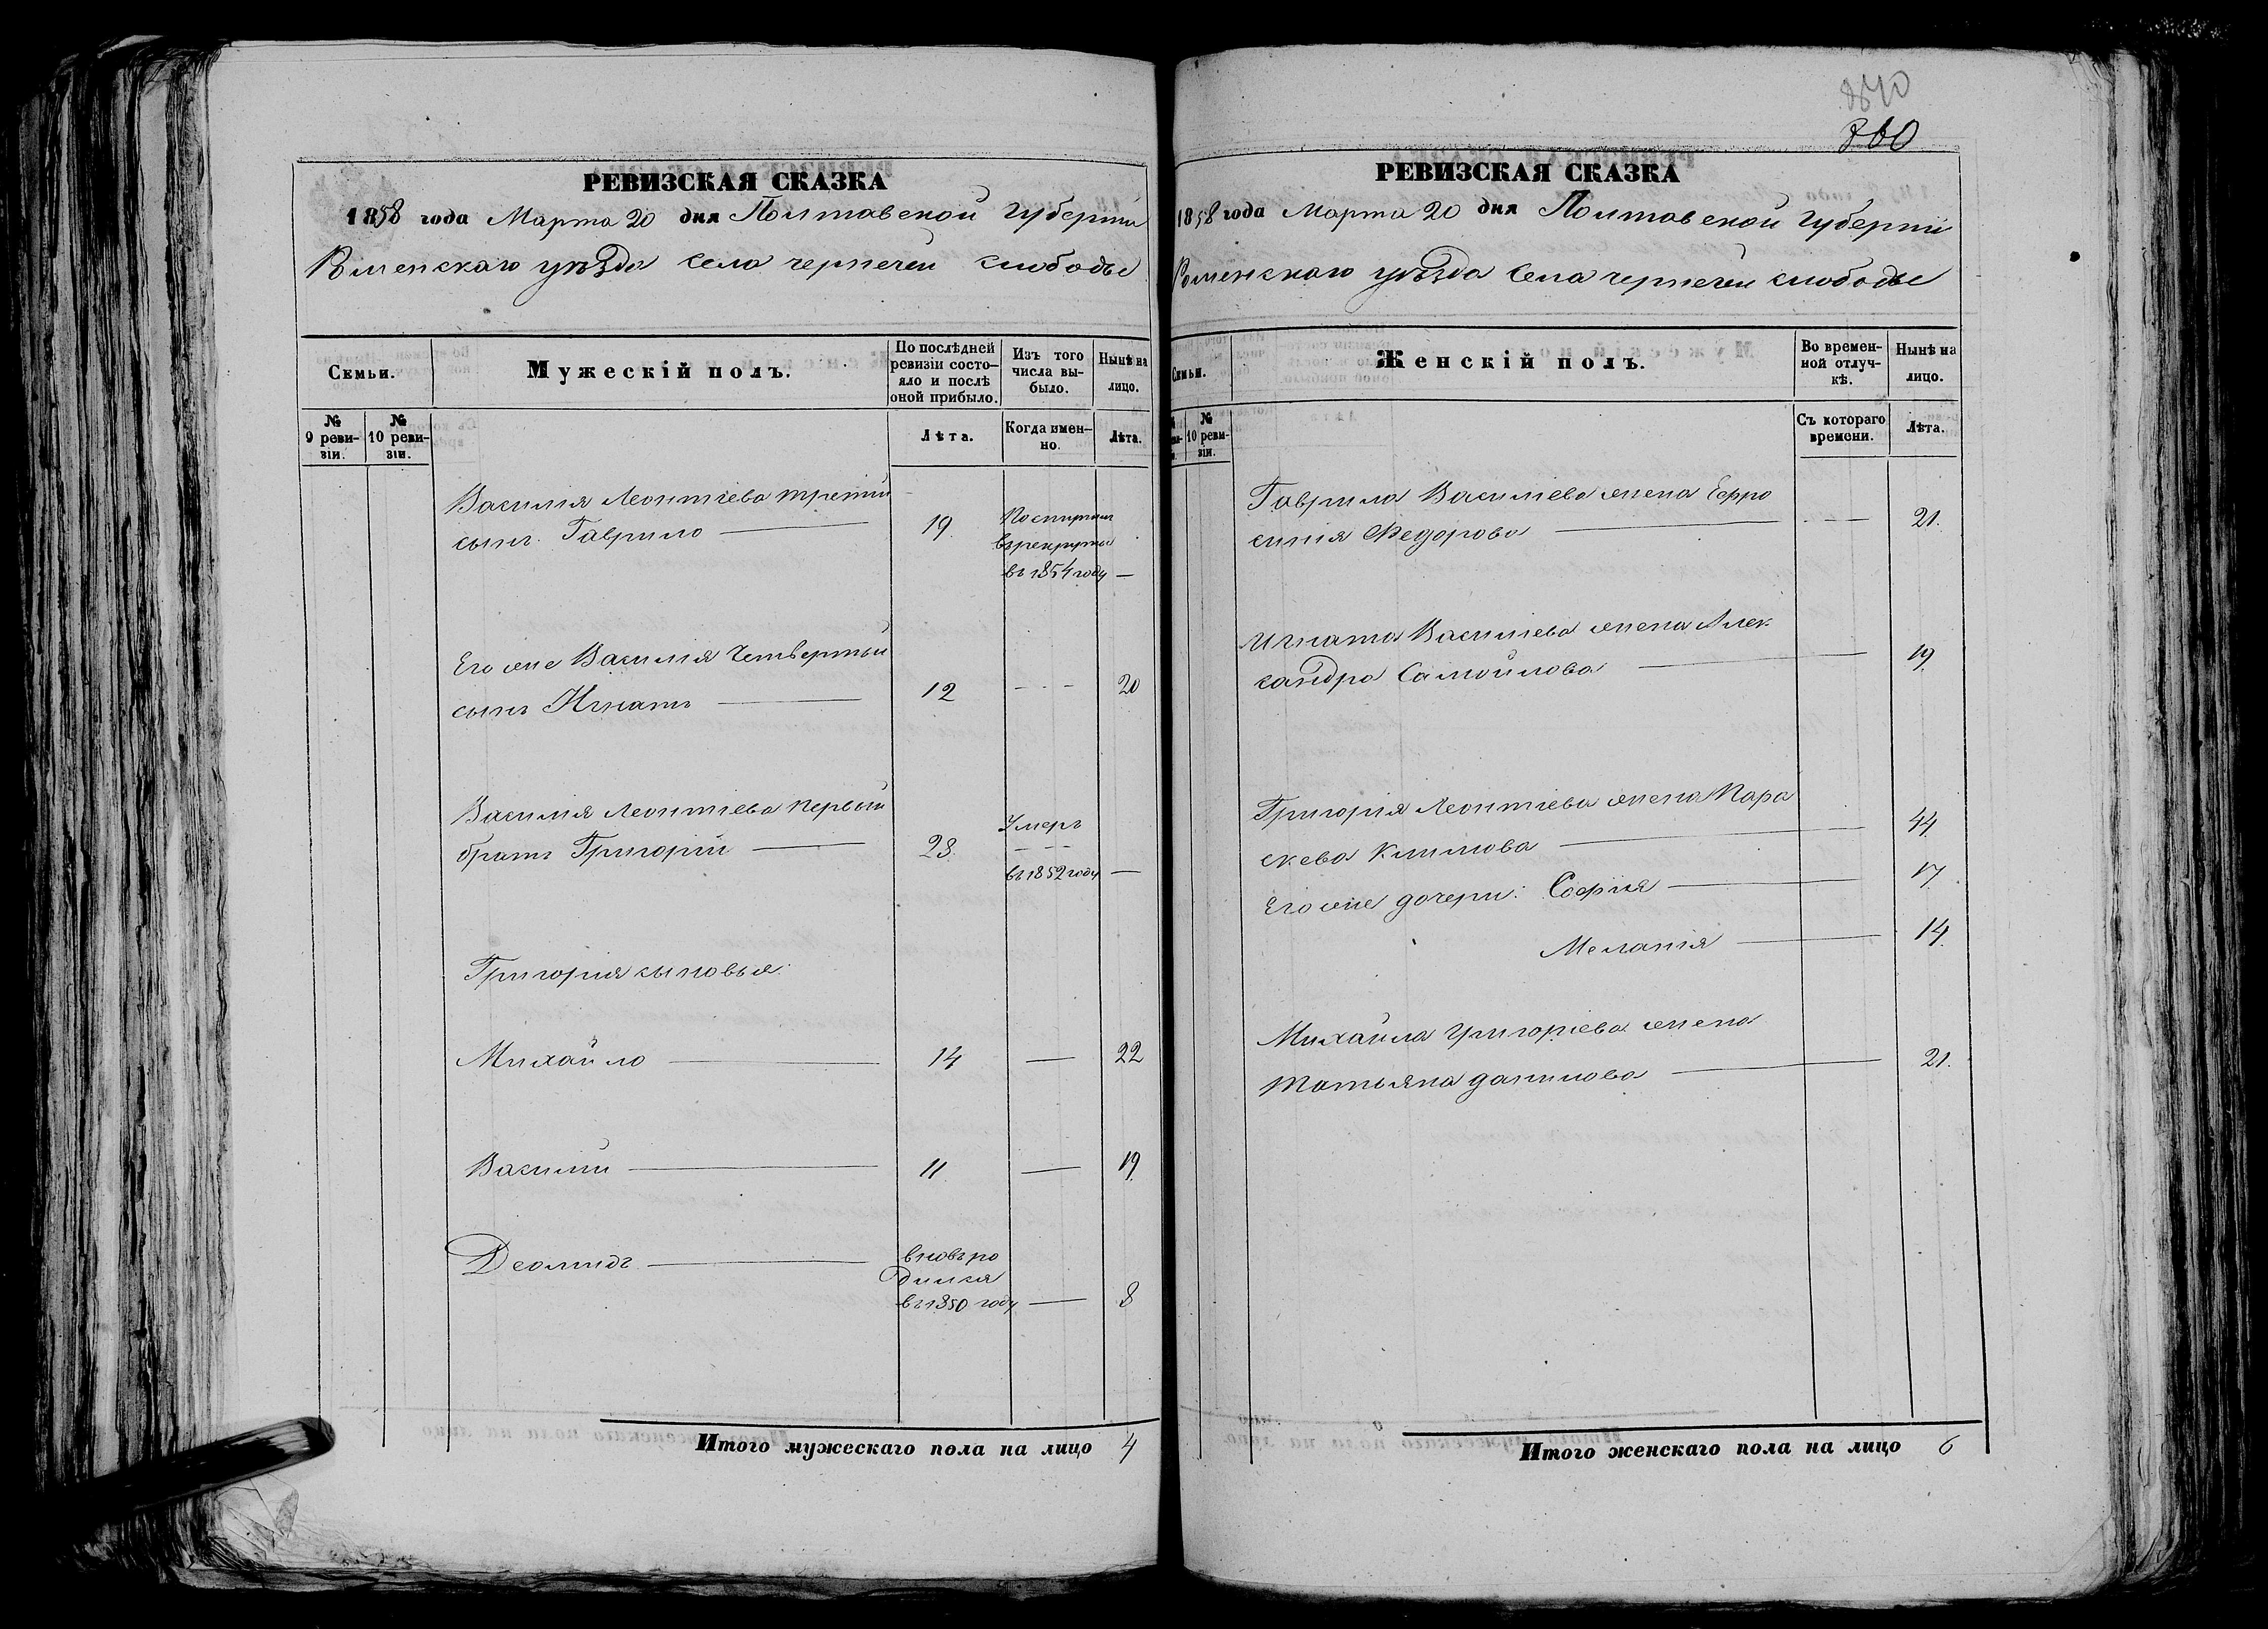 РЕВИЗСКАЯ СКАЗКА
1858 года Марта 20 дня Полтавской Губерніи
Роменскаго уѣзда села чернечей слободы
Семьи.
Мужескій полъ.
По послѣдней ревизіи состо-
яло и послѣ
оной прибыло.
Изъ того
числа вы-
было.
Нынѣ на
лицо.
№
9 реви-
зіи.
№
10 реви-
зіи.
Лѣта.
Когда имен-
но.
Лѣта.
Василія Леонтіева третій
сынъ. Гаврило
19
Поступилъ
въ рекруты
въ 1854 году
Его же Василія Четвертый
сынъ Игнатъ
12
20
Василія Леонтіева первый
братъ Григорій
28.
Умеръ
въ 1852 году
Григорія сыновья:
Михайло
14
22
Василій
11
19
Деомидъ
вновь ро
дился
въ 1850 году
8
Итого мужескаго пола на лицо 4
360
РЕВИЗСКАЯ СКАЗКА
1858 года Марта 20 дня Полтавской Губерніи
Роменскаго уѣзда села чернечей слободы
Семьи.
Женскій полъ.
Во времен-
ной отлуч-
кѣ.
Нынѣ на
лицо.
№
10 реви-
зіи.
Съ котораго
времени.
Лѣта.
Гаврила Василіева жена Ефро
синія Федорова
21.
Игната Василіева жена Алек
сандра Самойлова
19
Григорія Леонтіева жена Пара
скева Климова
44
Его же дочери: Софія
17
Меланія
14
Михайла Григоріева жена
Татьяна данилова
21.
Итого женскаго пола на лицо 6